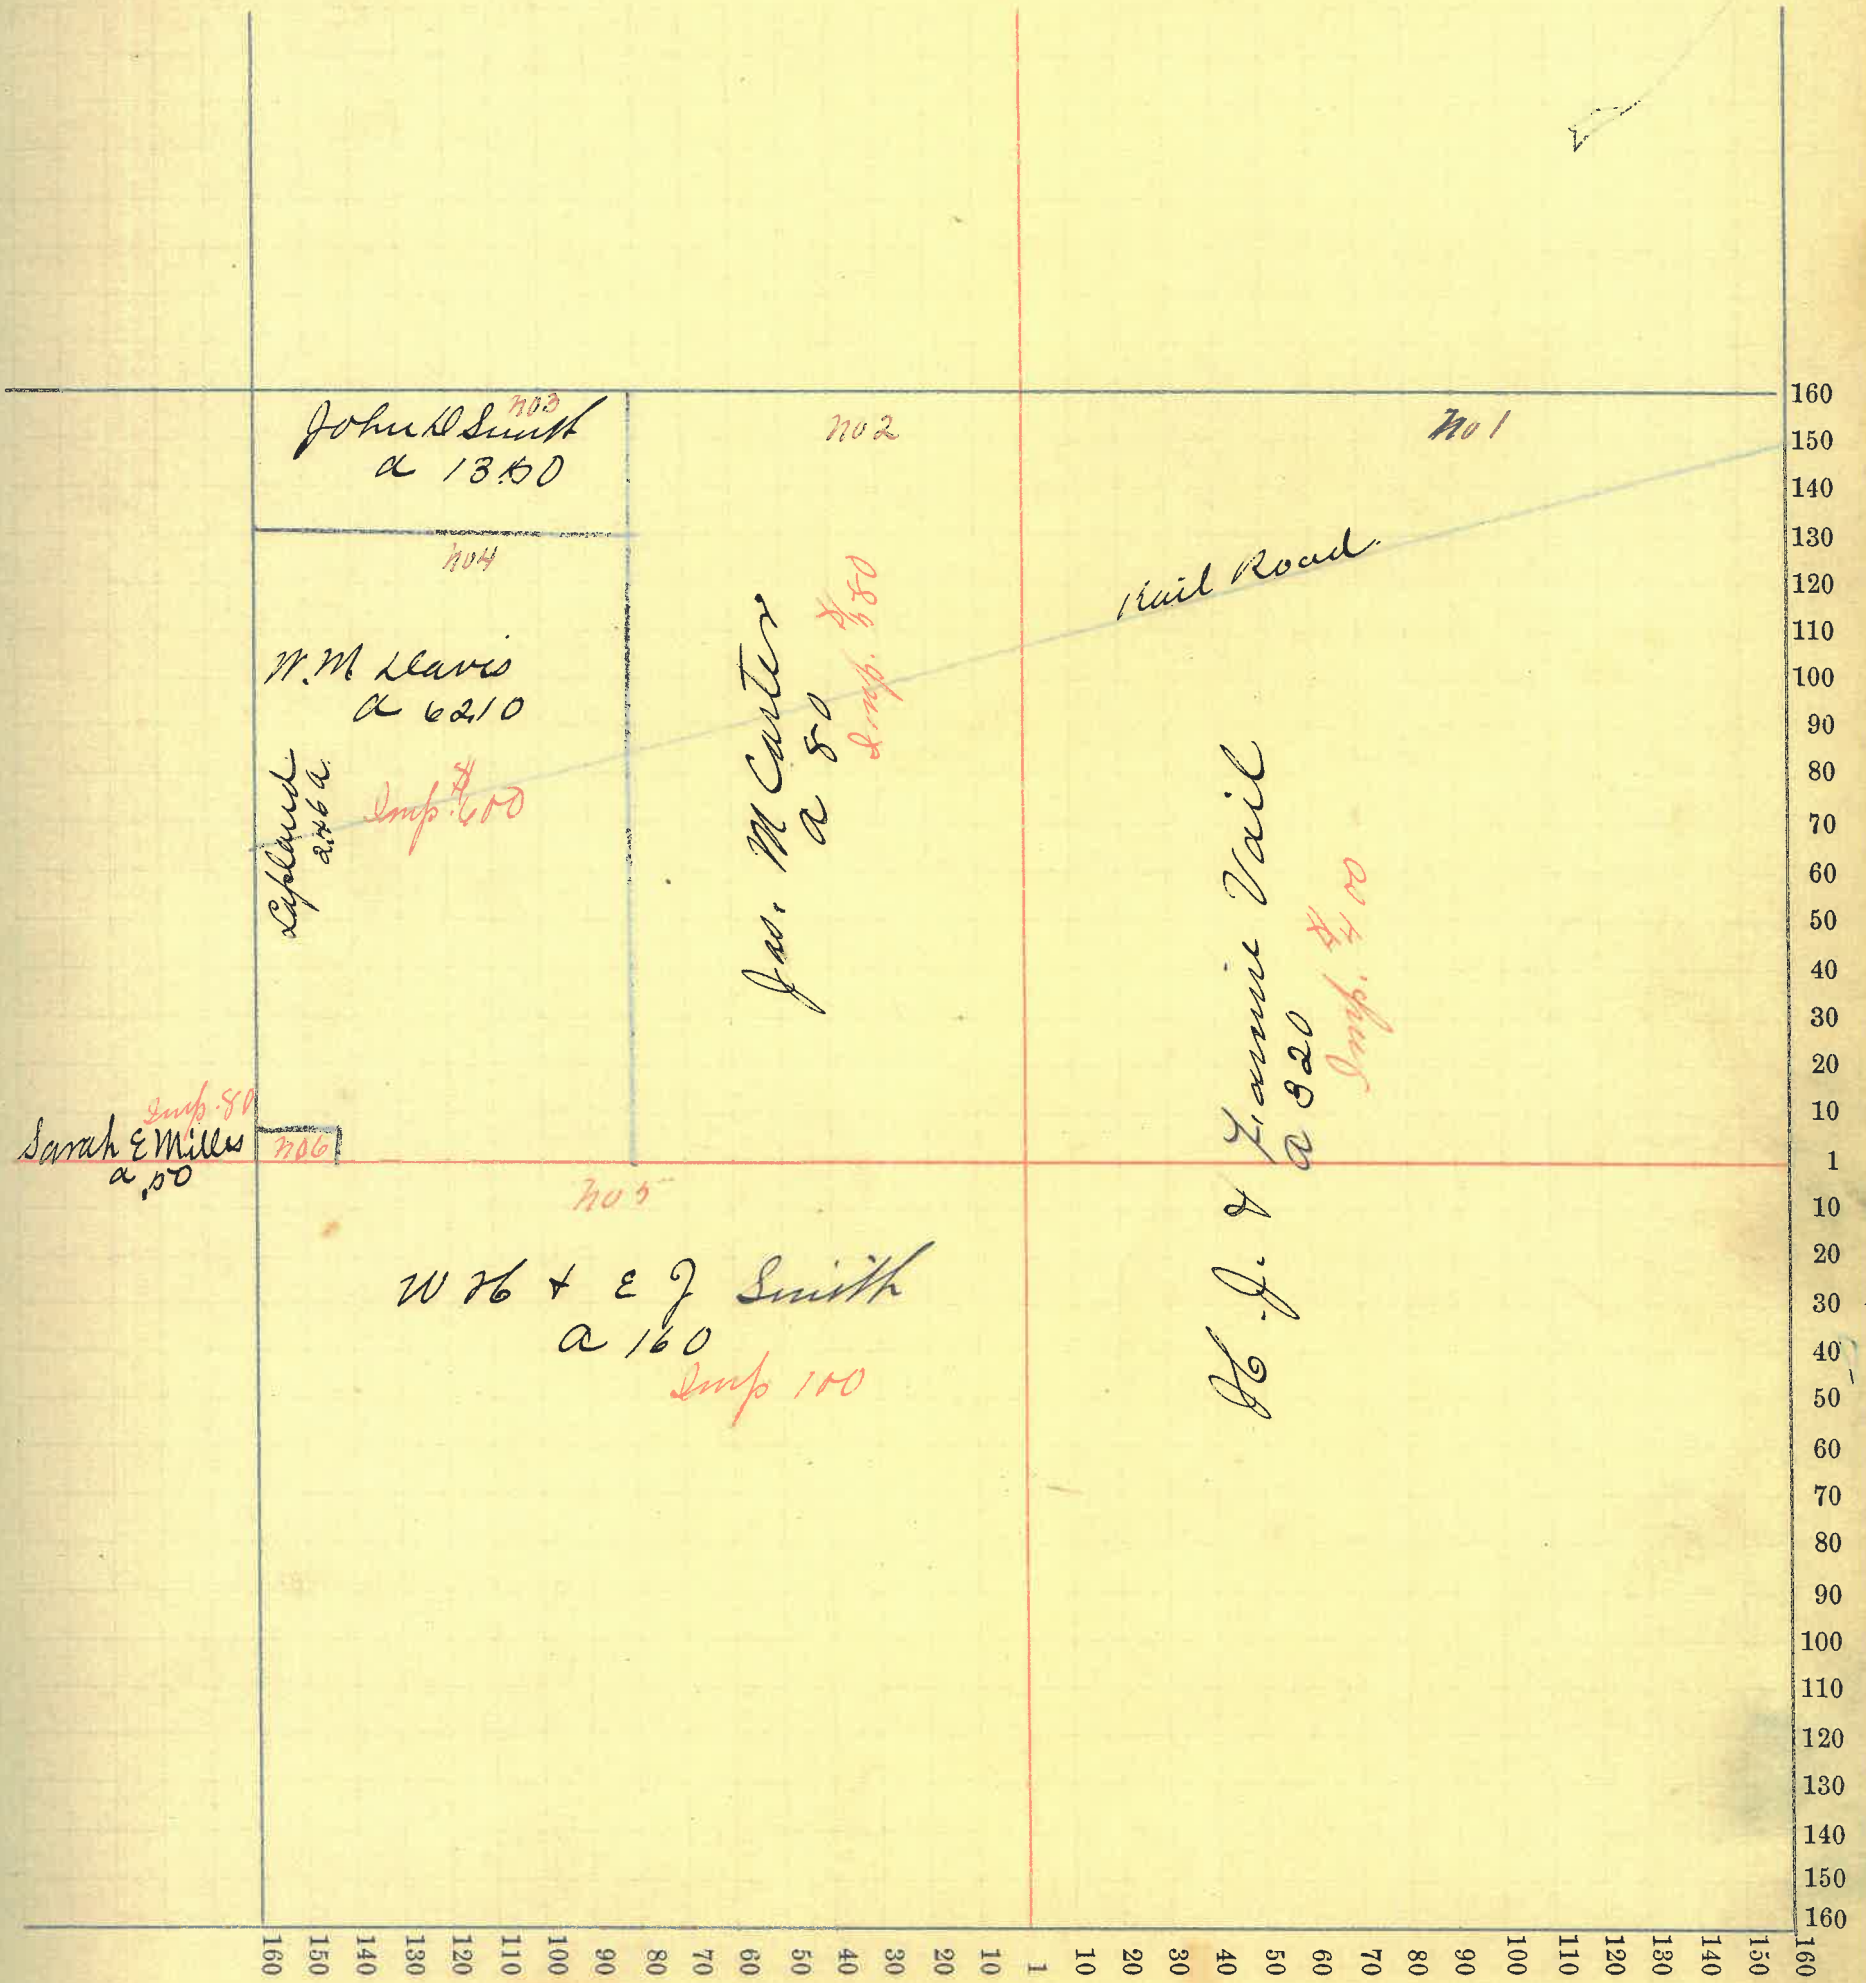 No 3
John D Smith
a 13.50
No 2
No 1
No 4
W. M Davis
a 62.10
Imp. $600
Lapland
2.46 a.
Jas. M Carter
a 80
Imp. $
Rail Road.
H. J. & Fannie Vail
a 320
Imp. $400
Imp. 80
Sarah E Miller
a .50
No 6
No 5
W H & E J Smith
a 160
Imp 100
160
150
140
130
120
110
100
90
80
70
60
50
40
30
20
10
1
10
20
30
40
50
60
70
80
90
100
110
120
130
140
150
160
160 150 140 130 120 110 100 90 80 70 60 50 40 30 20 10 1 10 20 30 40 50 60 70 80 90 100 110 120 130 140 150 160